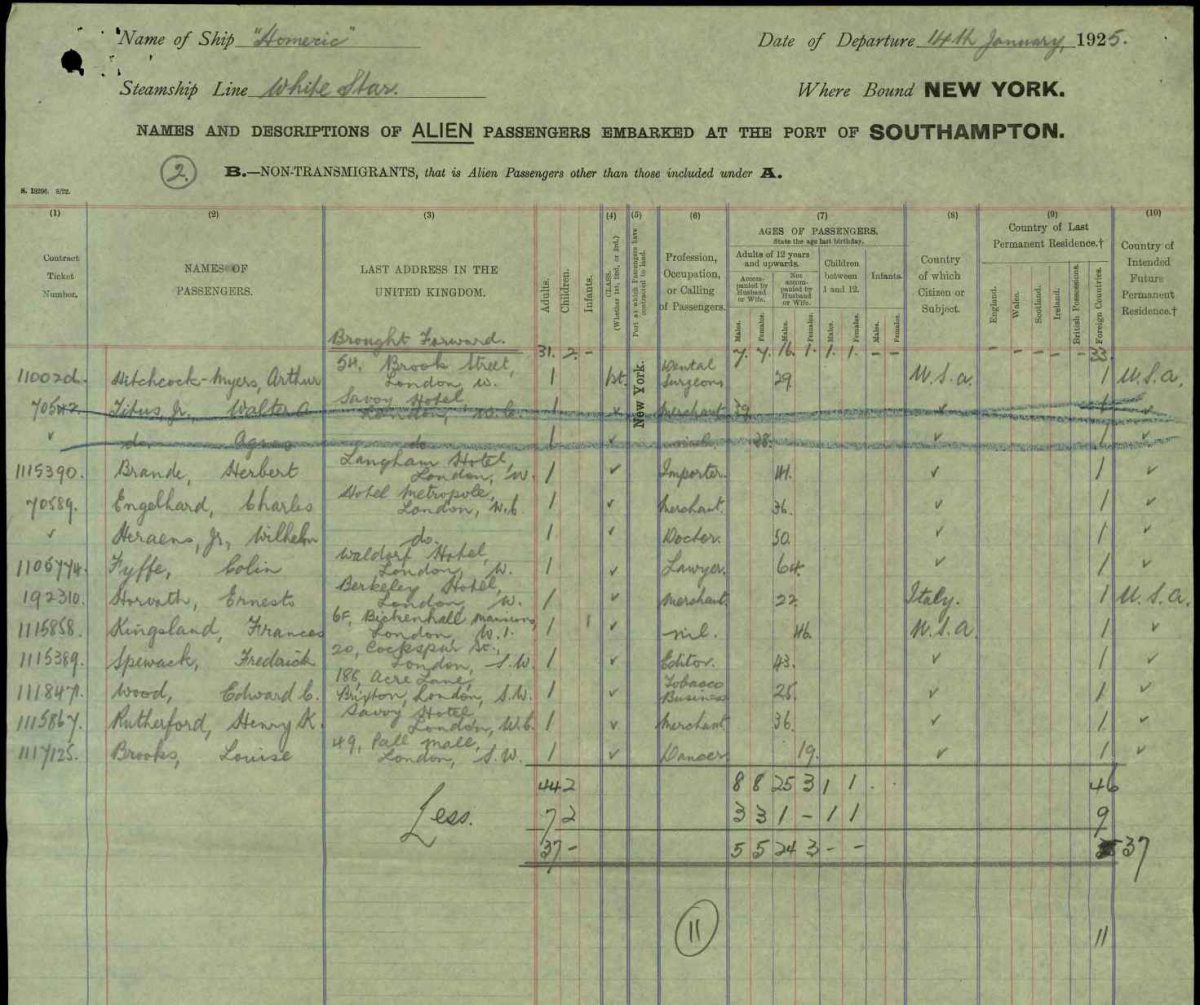 Name of Ship "Homeric" Date of Departure 14th January, 1925.
Steamship Line White Star. Where Bound NEW YORK.
NAMES AND DESCRIPTIONS OF ALIEN PASSENGERS EMBARKED AT THE PORT OF SOUTHAMPTON.
2. B.—NON-TRANSMIGRANTS, that is Alien Passengers other than those included under A.
(1) (2) (3) (4) (5) (6) (7) (8) (9) (10)
Contract Ticket Number.
NAMES OF PASSENGERS.
LAST ADDRESS IN THE UNITED KINGDOM.
Adults.
Children.
Infants.
CLASS. (Whether 1st, 2nd, or 3rd.)
Port at which Passengers have contracted to land.
Profession, Occupation, or Calling of Passengers.
AGES OF PASSENGERS.
State the age last birthday.
Adults of 12 years and upwards.
Children between 1 and 12.
Infants.
Accompanied by Husband or Wife.
Not accompanied by Husband or Wife.
Males. Females. Males. Females. Males. Females. Males. Females.
Country of which Citizen or Subject.
Country of Last Permanent Residence.†
England. Wales. Scotland. Ireland. British Possessions. Foreign Countries.
Country of Intended Future Permanent Residence.†
Brought Forward. 31. 2. - 7. 7. 16. 1. 1. 1. - - - - - - - 33.
New York.
54, Brook Street,
110026. Hitchcock-Myers, Arthur London, W. 1 1st. Dental Surgeons 29. U.S.A. 1 U.S.A.
Savoy Hotel,
70542 Titus, Jr., Walter A London, W.C. 1 ✓ Merchant 39. ✓ 1 ✓
✓ do. Agnes do 1 ✓ nil 38. ✓ 1 ✓
Langham Hotel,
1115390. Brande, Herbert London, W. 1 ✓ Importer. 41. ✓ 1 ✓
Hotel Metropole,
70589. Engelhard, Charles London, W.C. 1 ✓ Merchant. 36. ✓ 1 ✓
✓ Heraens, Jr., Wilhelm do. 1 ✓ Doctor. 50. ✓ 1 ✓
Waldorf Hotel,
1105774. Fyffe, Colin London, W. 1 ✓ Lawyer. 64. ✓ 1 ✓
Berkeley Hotel,
192310. Horvath, Ernesto London, W. 1 ✓ Merchant. 22. Italy. 1 U.S.A.
6F, Bickenhall Mansions,
1115858. Kingsland, Frances London, W.1. 1 1 ✓ nil. 46. U.S.A. 1 ✓
20, Cockspur St.,
1115389. Spewack, Fredrick London, S.W. 1 ✓ Editor. 43. ✓ 1 ✓
186, Acre Lane,
1118471. Wood, Edward C. Brixton, London, S.W. 1 ✓ Tobacco Business 25. ✓ 1 ✓
Savoy Hotel
1115867. Rutherford, Henry K. London, W.C. 1 ✓ Merchant. 36. ✓ 1 ✓
49, Pall Mall,
1117125. Brooks, Louise London, S.W. 1 ✓ Dancer 19. ✓ 1 ✓
44 2 8 8 25 3 1 1 . . 46
Less. 7 2 3 3 1 - 1 1 9
37 - 5 5 24 3 - - 37
11 11